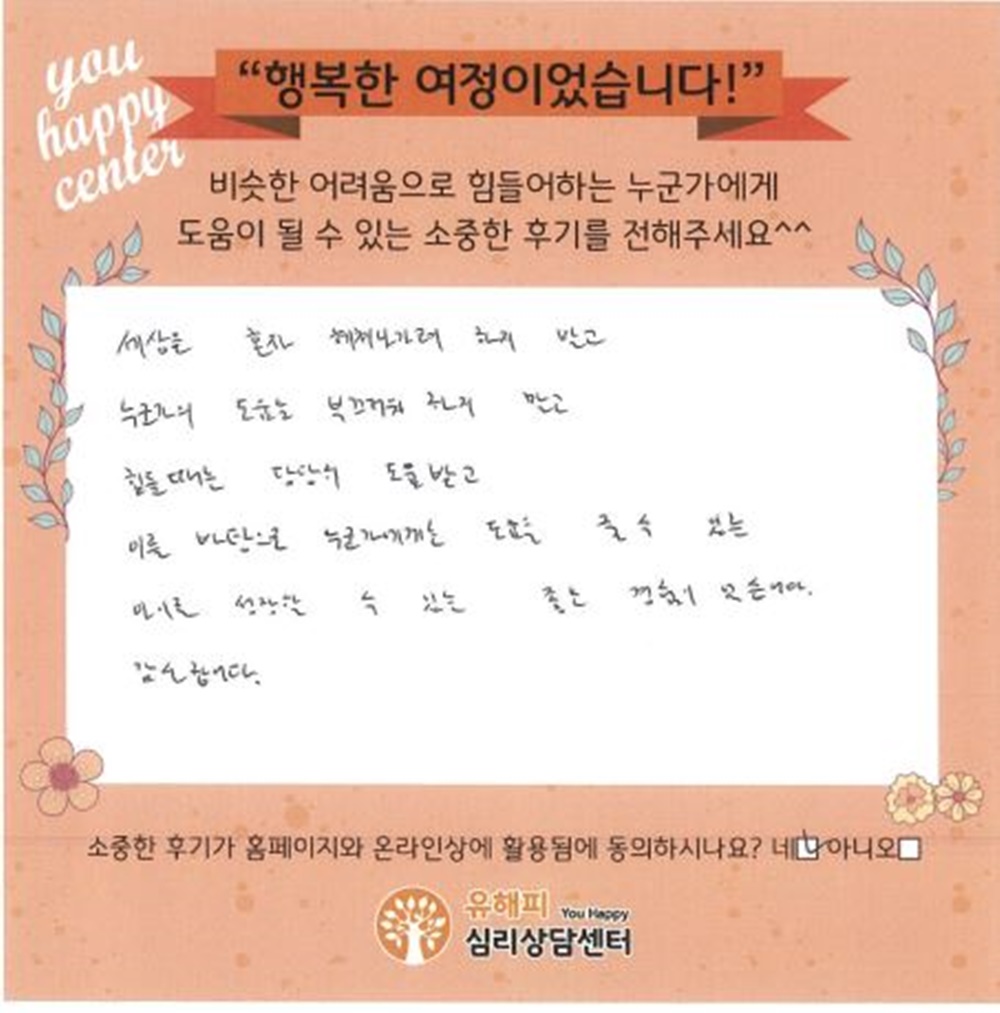 you
happy
center
“행복한 여정이었습니다!”
비슷한 어려움으로 힘들어하는 누군가에게
도움이 될 수 있는 소중한 후기를 전해주세요^^
세상을 혼자 헤쳐나가려 하지 말고
누군가의 도움을 부끄러워 하지 말고
힘들때는 당당히 도움받고
이를 바탕으로 누군가에게는 도움을 줄 수 있는
성장할 수 있는 좋은
감사합니다.
소중한 후기가 홈페이지와 온라인상에 활용됨에 동의하시나요? 네 아니오
유해피 You Happy
심리상담센터